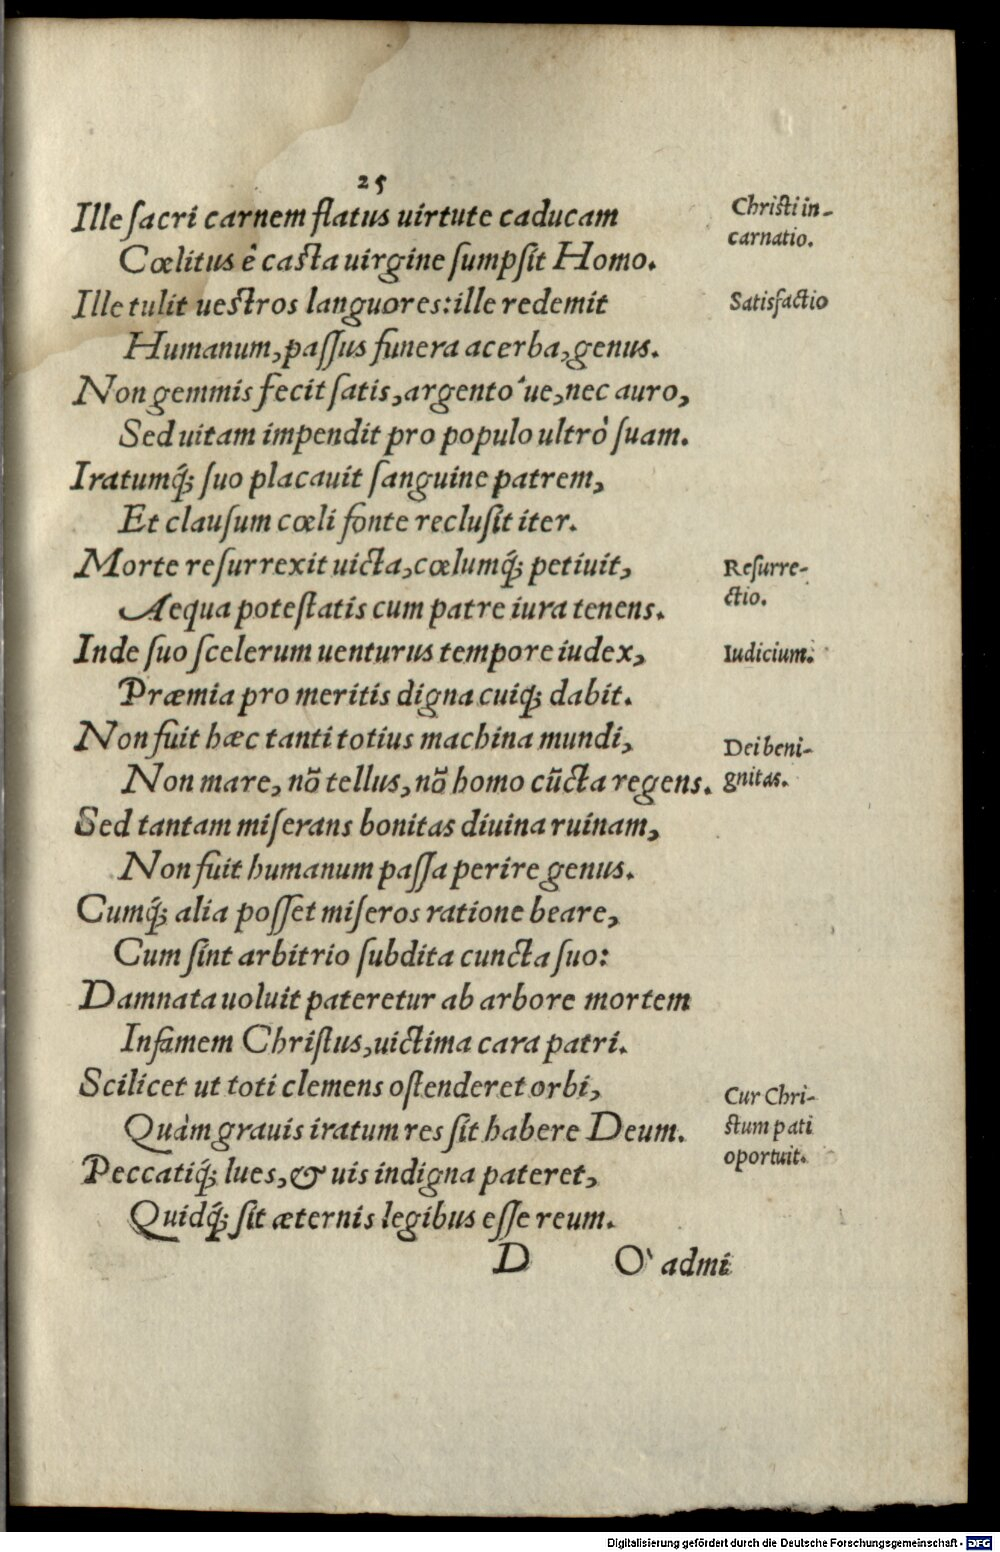 25
Ille sacri carnem flatus uirtute caducam
Cœlitus è casta uirgine sumpsit Homo.
Ille tulit uestros languores: ille redemit
Humanum, passus funera acerba, genus.
Non gemmis fecit satis, argento'ue, nec auro,
Sed uitam impendit pro populo ultrò suam.
Iratumq́; suo placauit sanguine patrem,
Et clausum cœli fonte reclusit iter.
Morte resurrexit uicta, cœlumq́; petiuit,
Aequa potestatis cum patre iura tenens.
Inde suo scelerum uenturus tempore iudex,
Præmia pro meritis digna cuiq; dabit.
Non fuit hæc tanti totius machina mundi,
Non mare, nõ tellus, nõ homo cũcta regens.
Sed tantam miserans bonitas diuina ruinam,
Non fuit humanum passa perire genus.
Cumq́; alia posset miseros ratione beare,
Cum sint arbitrio subdita cuncta suo:
Damnata uoluit pateretur ab arbore mortem
Infamem Christus, uictima cara patri.
Scilicet ut toti clemens ostenderet orbi,
Quàm grauis iratum res sit habere Deum.
Peccatiq́; lues, & uis indigna pateret,
Quidq́; sit æternis legibus esse reum.
D O` admi
Christi in-
carnatio.
Satisfactio
Resurre-
ctio.
Iudicium.
Dei beni-
gnitas.
Cur Chri-
stum pati
oportuit.
Digitalisierung gefördert durch die Deutsche Forschungsgemeinschaft - DFG